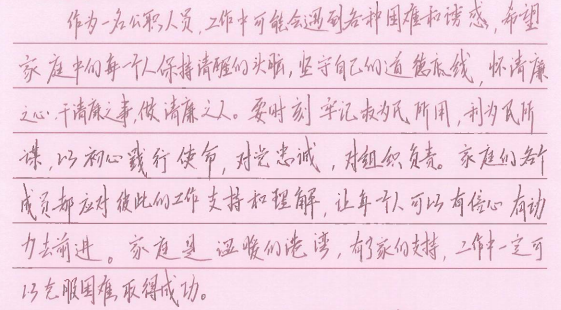 作为一名公职人员,工作中可能会遇到各种困难和诱惑,希望
家庭中的每一个人保持清醒的头脑,坚守自己的道德底线,怀清廉
之心,干清廉之事,做清廉之人。要时刻牢记权为民所用,利为民所
谋,以初心践行使命,对党忠诚,对组织负责。家庭的各个
成员都应对彼此的工作支持和理解,让每一个人可以有信心有动
力去前进。家庭是温暖的港湾,有了家的支持,工作中一定可
以克服困难取得成功。